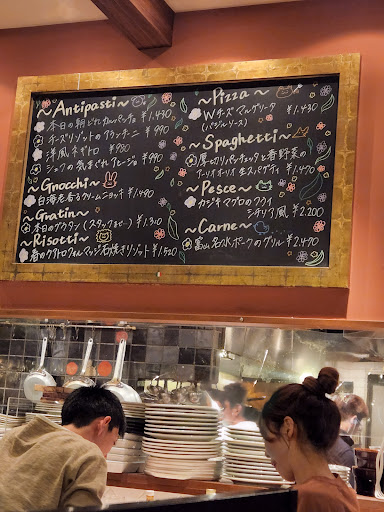 ~Antipasti~
本日の朝どれカルパッチョ ¥1,430
チーズリゾットのアランチーニ ¥990
洋風ネギトロ ¥930
シェフの気まぐれアヒージョ ¥990
~Gnocchi~
白海老香るクリームニョッキ ¥1,490
~Gratin~
本日のグラタン(スタッフまで) ¥1,320
~Risotti~
春のクアトロフォルマッジ石焼きリゾット ¥1,520
~Pizza~
Wチーズマルゲリータ ¥1,430
(バジルソース)
~Spaghetti~
厚切りパンチェッタと春野菜の
アーリオオーリオスパゲティ ¥1,470
~Pesce~
カジキマグロのソテイ
シチリア風 ¥2,200
~Carne~
富山名水ポークのグリル ¥2,470